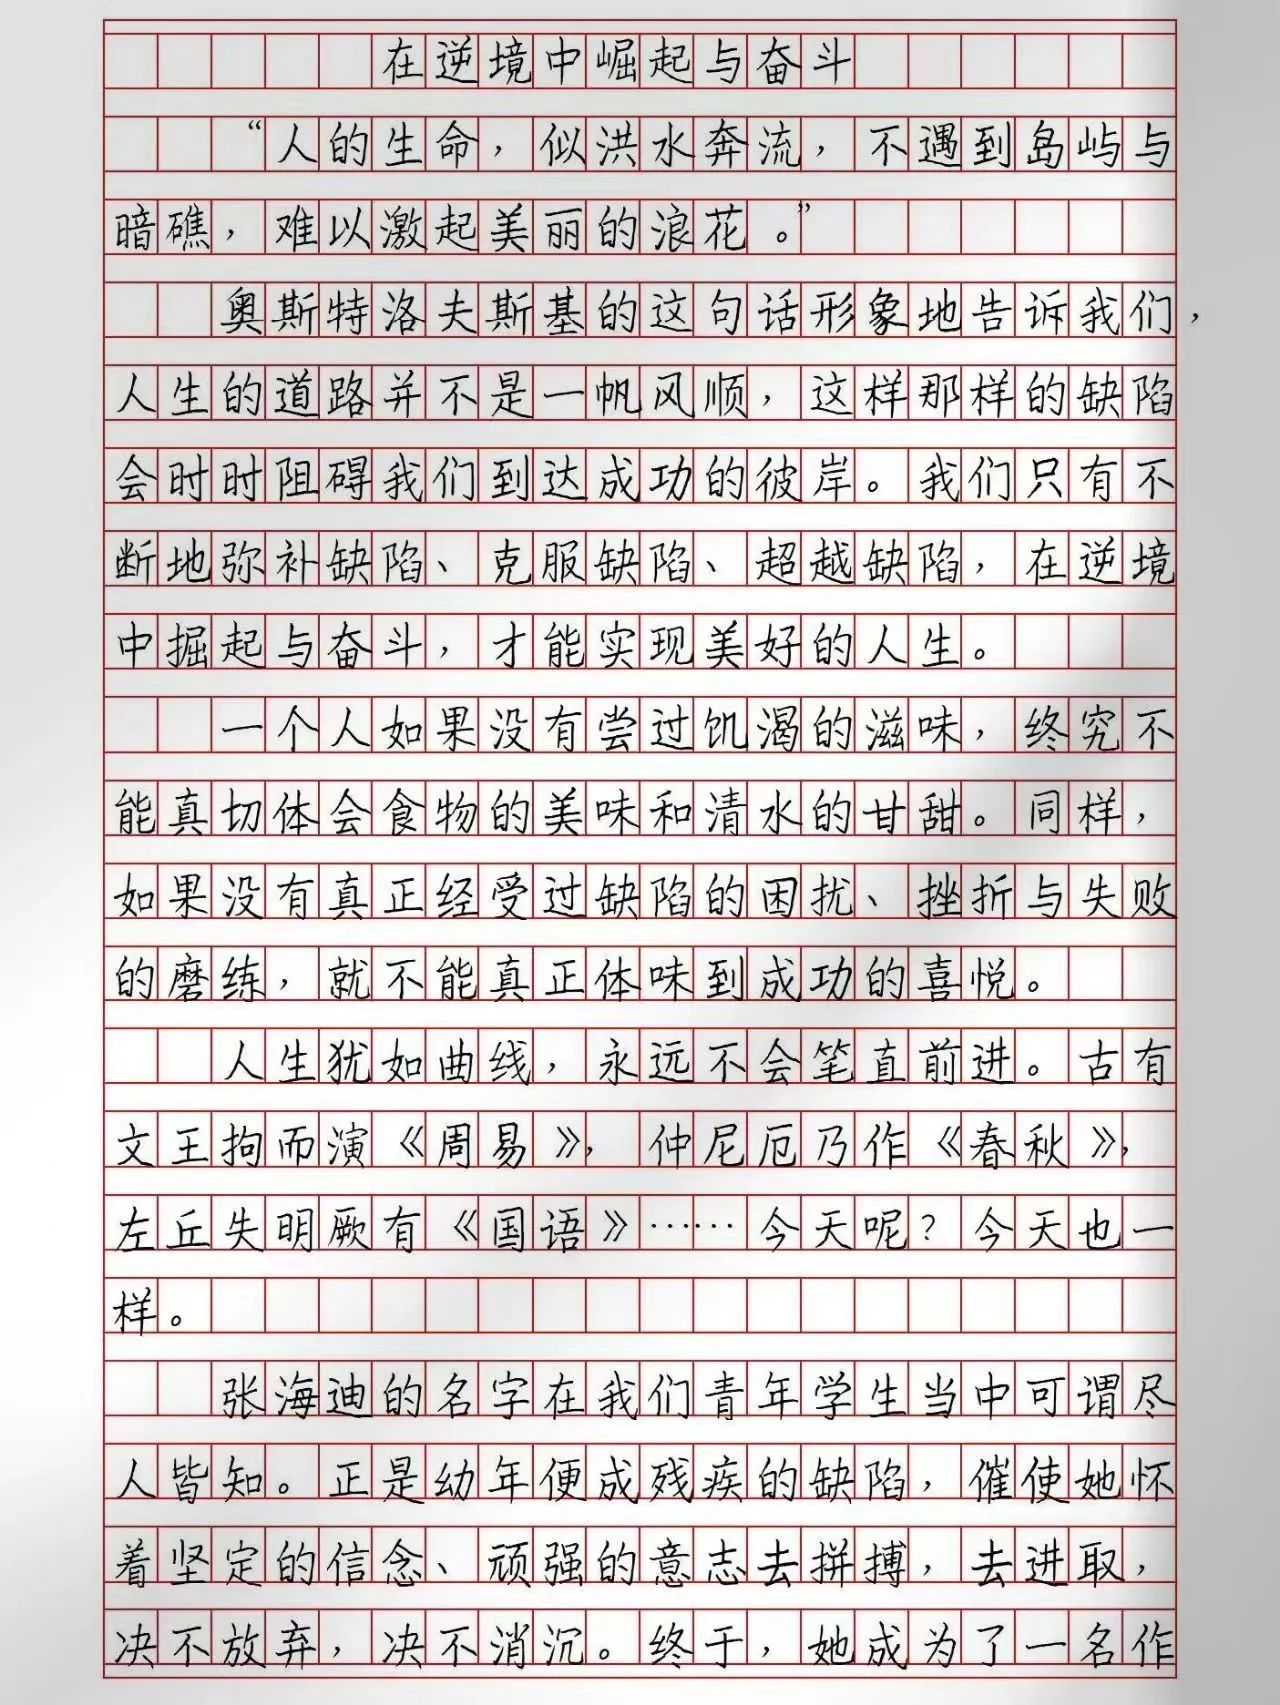 在逆境中崛起与奋斗
“人的生命，似洪水奔流，不遇到岛屿与
暗礁，难以激起美丽的浪花。”
奥斯特洛夫斯基的这句话形象地告诉我们，
人生的道路并不是一帆风顺，这样那样的缺陷
会时时阻碍我们到达成功的彼岸。我们只有不
断地弥补缺陷、克服缺陷、超越缺陷，在逆境
中掘起与奋斗，才能实现美好的人生。
一个人如果没有尝过饥渴的滋味，终究不
能真切体会食物的美味和清水的甘甜。同样，
如果没有真正经受过缺陷的困扰、挫折与失败
的磨练，就不能真正体味到成功的喜悦。
人生犹如曲线，永远不会笔直前进。古有
文王拘而演《周易》，仲尼厄乃作《春秋》，
左丘失明厥有《国语》……今天呢？今天也一
样。
张海迪的名字在我们青年学生当中可谓尽
人皆知。正是幼年便成残疾的缺陷，催使她怀
着坚定的信念、顽强的意志去拼搏，去进取，
决不放弃，决不消沉。终于，她成为了一名作